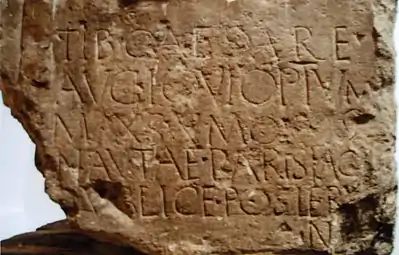 TIB·CAESARE·
AVG·IOVI OPTVM
MAXSVMO
NAVTAE·PARISIAC
BLICE·POSIERV
N